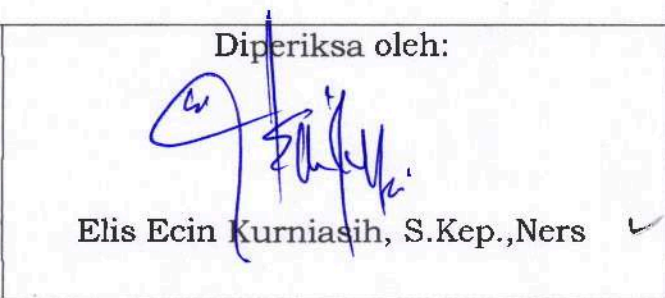 Diperiksa oleh:
Elis Ecin Kurniasih, S.Kep.,Ners